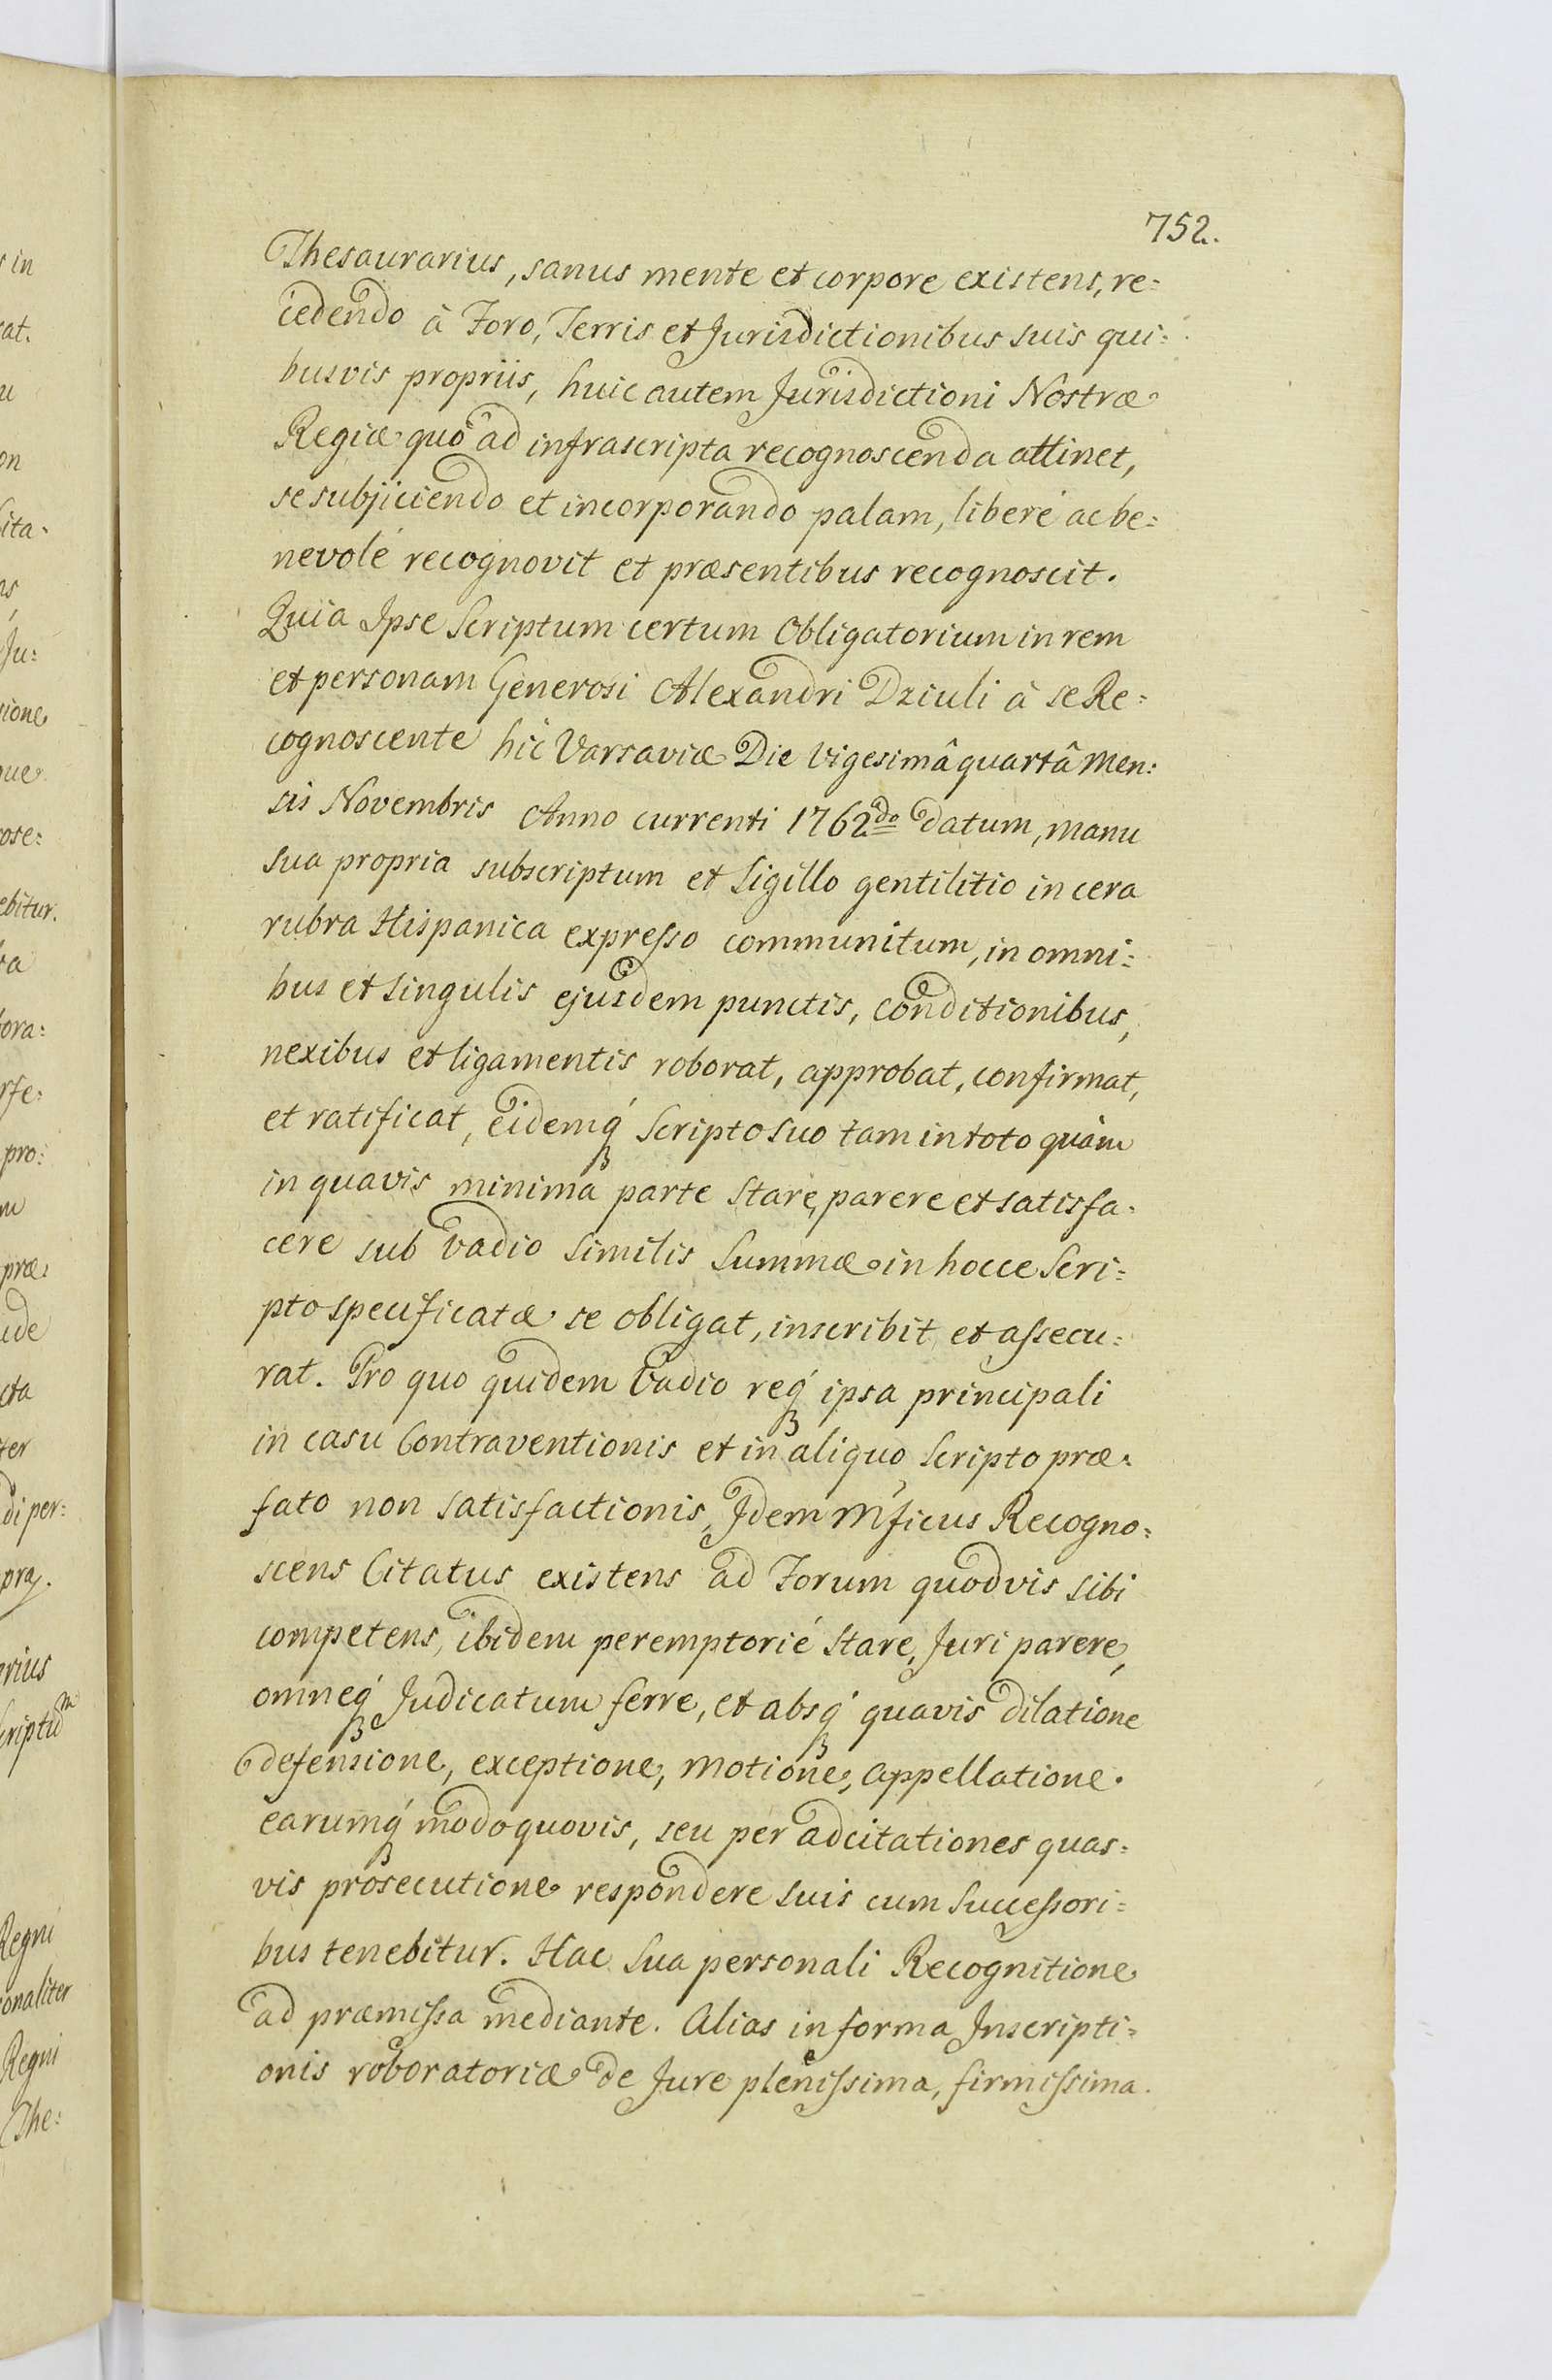 752.
Thesaurarius, sanus mente et corpore existens, re=
cedendo à Foro, Terris et Jurisdictionibus suis qui=
busvis propriis, huic autem Jurisdictioni Nostræ
Regiæ quò ad infrascripta recognoscenda attinet,
se subjiciendo et incorporando palam, liberé ac be=
nevolé recognovit et præsentibus recognoscit.
Quia Ipse Scriptum certum Obligatorium in rem
et personam Generosi Alexandri Dziuli à se Re=
cognoscente hic Varsaviæ Die Vigesimâ quartâ Men:
sis Novembris Anno currenti 1762do datum, manu
sua propria subscriptum et Sigillo gentilitio in cera
rubra Hispanica expresso communitum, in omni=
bus et singulis ejusdem punctis, conditionibus,
nexibus et ligamentis roborat, approbat, confirmat,
et ratificat, eidemq́ꝫ Scripto suo tam in toto quàm
in quavis minima parte stare, parere et satisfa=
cere sub vadio similis Summæ in hocce Scri=
pto specificatæ se obligat, inscribit et assecu=
rat. Pro quo quidem Vadio req́ꝫ ipsa principali
in casu Contraventionis et in aliquo Scripto præ=
fato non satisfactionis, Idem Mficus Recogno=
scens Citatus existens ad Forum quodvis sibi
competens, ibidem peremptorié stare, Juri parere,
omneq́ꝫ Judicatum ferre, et absq́ꝫ quavis dilatione
defensione, exceptione, motione, appellatione.
earumq́ꝫ modo quovis, seu per adcitationes quas=
vis prosecutione respondere suis cum Successori=
bus tenebitur. Hac Sua personali Recognitione
ad præmissa mediante. Alias in forma Inscripti=
onis roboratoriæ de Jure plenissima, firmissima.
in
cat.
u
on
ita.
ns
Ju:
sione
que
ose:
ebitur.
ra
ora:
rfe:
pro:
m
præ:
ide
cta
ter
di per:
præ.
rius
criptum
Regni
onaliter
Regni
The: